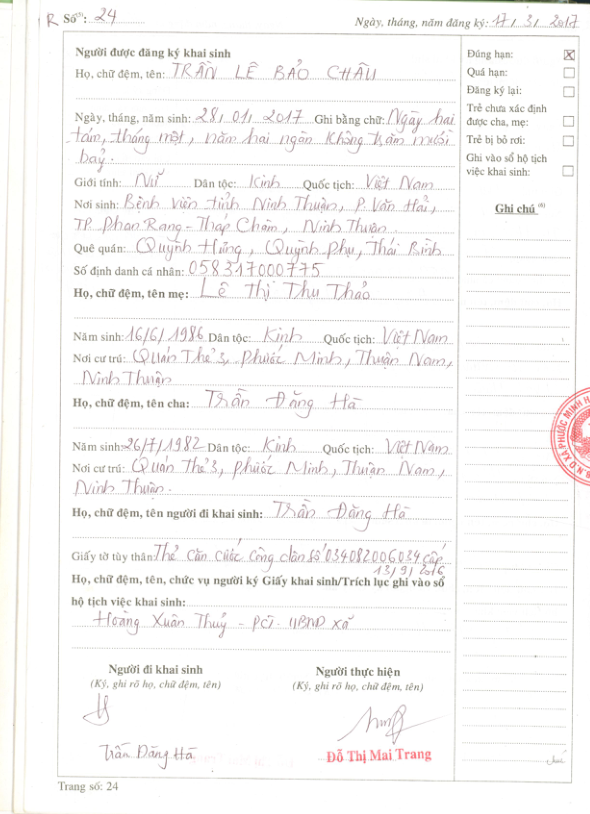 R Số: 24
Ngày, tháng, năm đăng ký: 17/3/2017
Người được đăng ký khai sinh
Họ, chữ đệm, tên: TRẦN LÊ BẢO CHÂU
Ngày, tháng, năm sinh: 28/01/2017 Ghi bằng chữ: Ngày hai
tám, tháng một, năm hai ngàn không trăm mười
bảy.
Giới tính: Nữ Dân tộc: Kinh Quốc tịch: Việt Nam
Nơi sinh: Bệnh viện tỉnh Ninh Thuận, P. Văn Hải,
TP. Phan Rang - Tháp Chàm, Ninh Thuận
Quê quán: Quỳnh Hưng, Quỳnh Phụ, Thái Bình
Số định danh cá nhân: 058317000775
Họ, chữ đệm, tên mẹ: Lê Thị Thu Thảo
Năm sinh: 16/6/1986 Dân tộc: Kinh Quốc tịch: Việt Nam
Nơi cư trú: Quán Thẻ 3, Phước Minh, Thuận Nam,
Ninh Thuận
Họ, chữ đệm, tên cha: Trần Đăng Hà
Năm sinh: 26/7/1982 Dân tộc: Kinh Quốc tịch: Việt Nam
Nơi cư trú: Quán Thẻ 3, Phước Minh, Thuận Nam,
Ninh Thuận.
Họ, chữ đệm, tên người đi khai sinh: Trần Đăng Hà
Giấy tờ tùy thân: Thẻ căn cước công dân số 034082006034 cấp
13/9/2016
Họ, chữ đệm, tên, chức vụ người ký Giấy khai sinh/Trích lục ghi vào sổ
hộ tịch việc khai sinh:
Hoàng Xuân Thuỷ - PCT. UBND xã
Người đi khai sinh
(Ký, ghi rõ họ, chữ đệm, tên)
Trần Đăng Hà
Người thực hiện
(Ký, ghi rõ họ, chữ đệm, tên)
Đỗ Thị Mai Trang
Đúng hạn: X
Quá hạn:
Đăng ký lại:
Trẻ chưa xác định
được cha, mẹ:
Trẻ bị bỏ rơi:
Ghi vào sổ hộ tịch
việc khai sinh:
Ghi chú (4)
N.D XÃ PHƯỚC MINH H
Trang số: 24